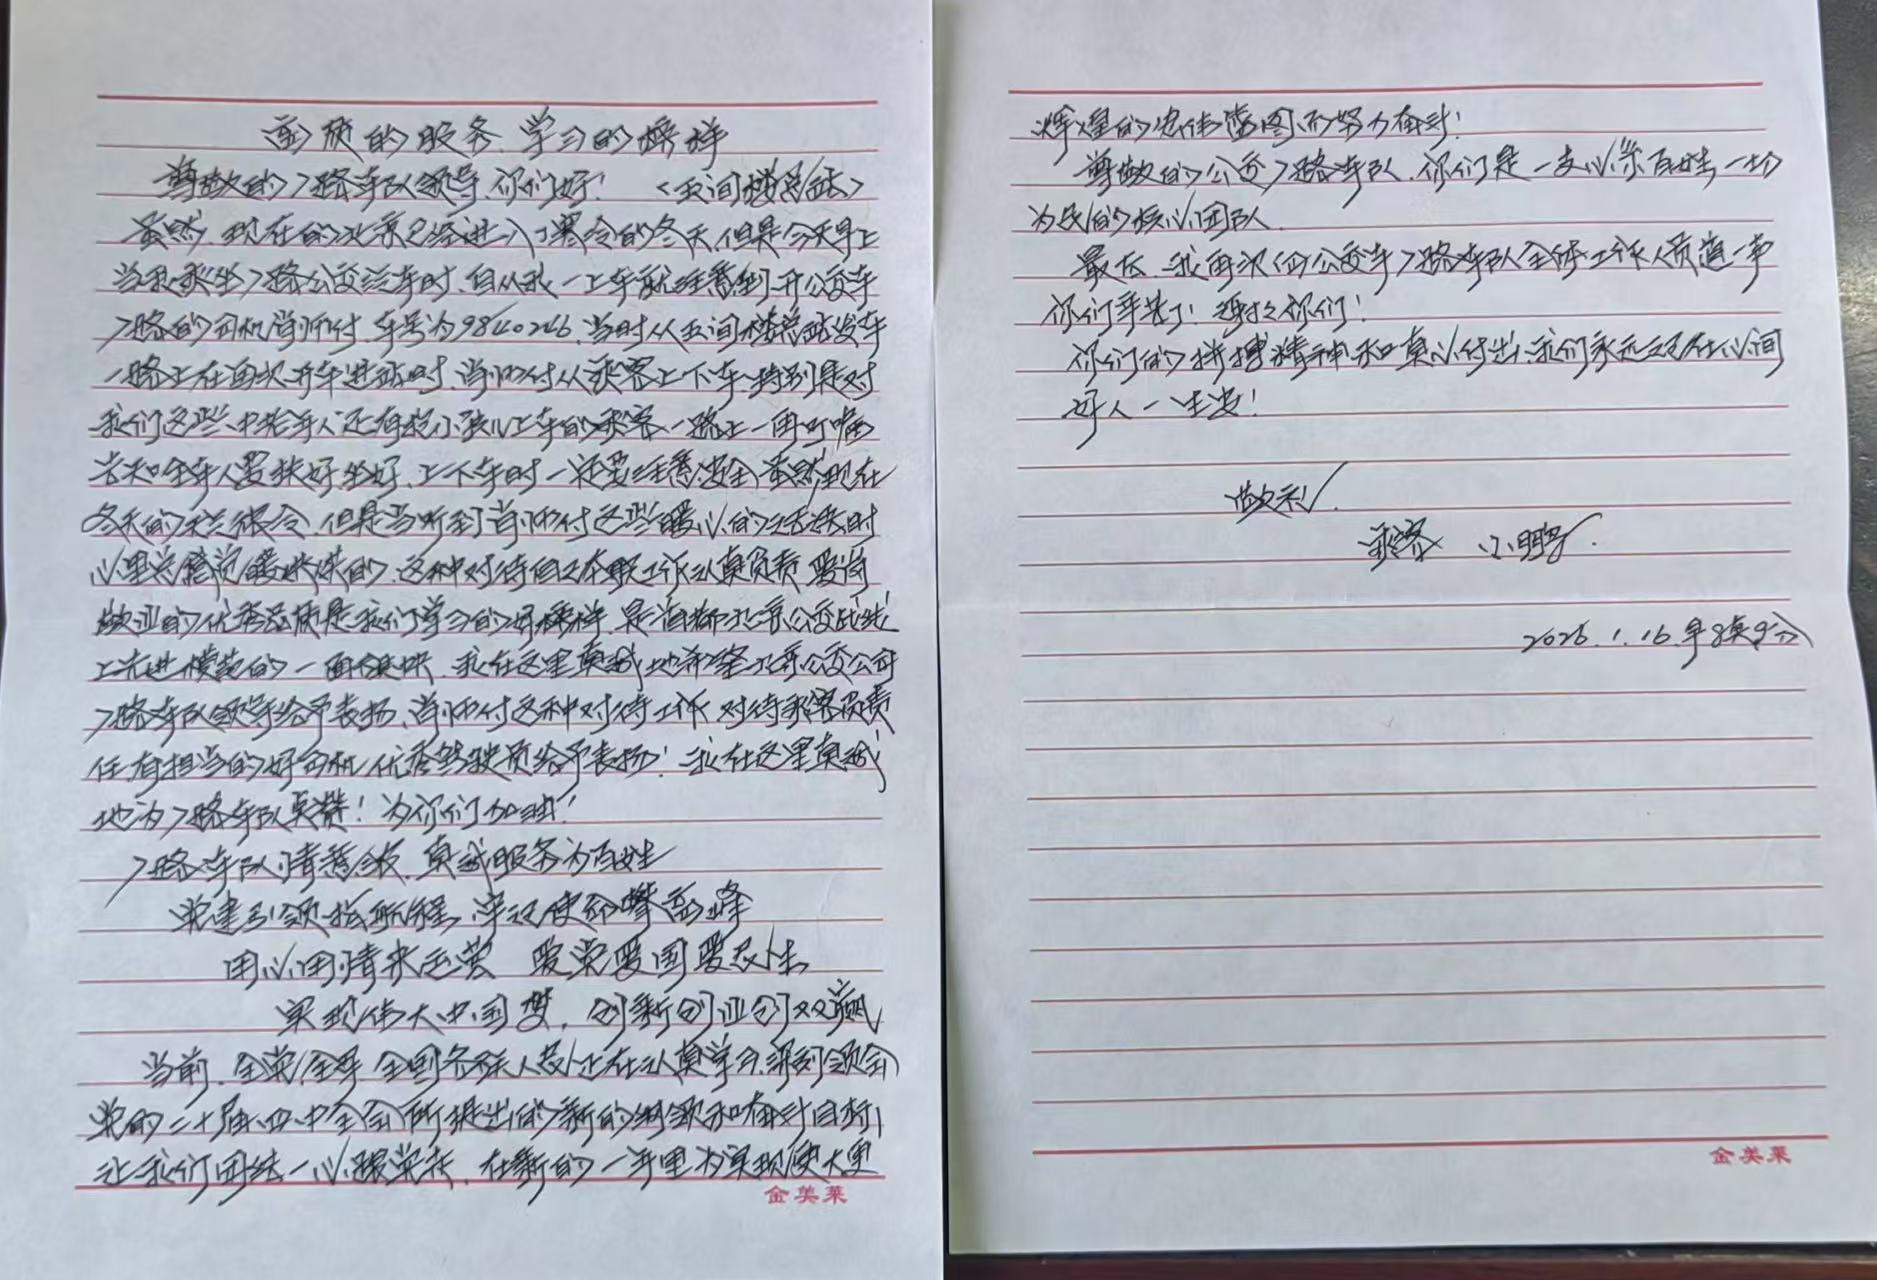 高质的服务 学习的榜样
尊敬的7路车队领导, 你们好! <五间楼总站>
虽然, 现在的北京已经进入了寒冷的冬天, 但是今天早上
当我乘坐7路公交汽车时, 自从我一上车就注意到开公交车
7路的司机肖师付, 车号为9840246, 当时从五间楼总站发车
一路上在每次开车进站时, 肖师付从乘客上下车, 特别是对
我们这些中老年人还有抱小孩儿上车的乘客一路上一再叮嘱
告知全车人要扶好坐好, 上下车时一定要注意安全, 虽然现在
冬天的天气很冷, 但是当听到肖师付这些暖心的话语时
心里总感觉暖烘烘的, 这种对待自己本职工作认真负责 爱岗
敬业的优秀品质是我们学习的好榜样, 是首都北京公交战线
上先进模范的一面旗帜, 我在这里真诚地希望北京公交公司
7路车队领导给予表扬, 肖师付这种对待工作, 对待乘客负责
任有担当的好司机优秀驾驶员给予表扬! 我在这里真诚
地为7路车队点赞! 为你们加油!
7路车队情意深, 真诚服务为百姓
党建引领抵新程, 牢记使命攀高峰
用心用情来运营 爱党爱国爱民生
实现伟大中国梦, 创新创业创双赢
当前, 全党全军全国各族人民正在认真学习深刻领会
党的二十届四中全会所提出的新的纲领和奋斗目标,
让我们团结一心跟党走, 在新的一年里为实现更大更
金美莱
辉煌的宏伟蓝图而努力奋斗!
尊敬的公交7路车队, 你们是一支心系百姓一切
为民的核心团队.
最后, 我再次向公交车7路车队全体工作人员道一声
你们辛苦了! 谢谢你们!
你们的拼搏精神和真心付出, 我们永远记在心间
好人一生安!
敬礼
乘客 小鹏
2026.1.16.早8点9分
金美莱